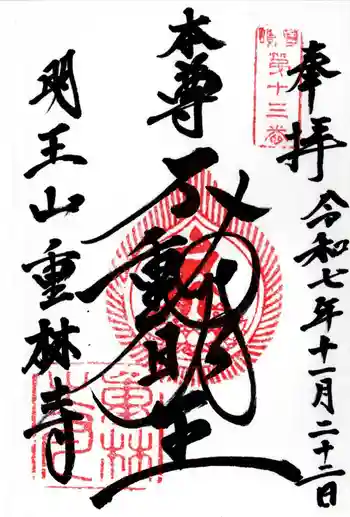 奉拝
令和七年十一月二十二日
第十三番
本尊
不動明王
明王山重林寺
重林寺